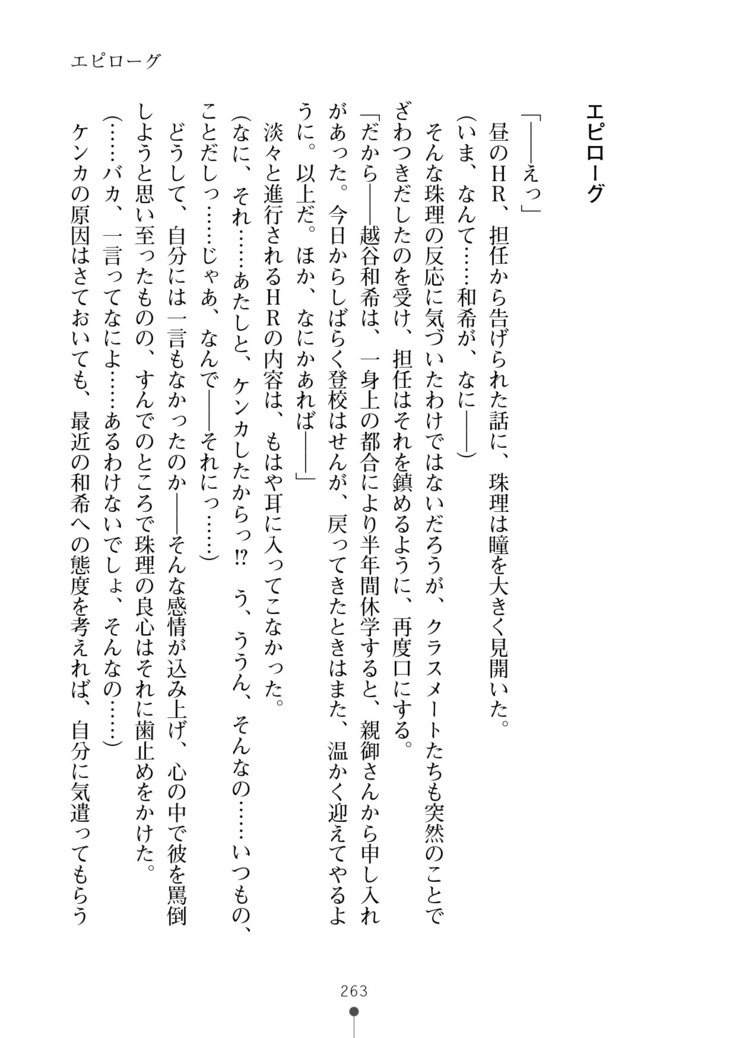 エピローグ
エピローグ
「――えっ」
昼のＨＲ、担任から告げられた話に、珠理は瞳を大きく見開いた。
（いま、なんて……和希が、なに――）
そんな珠理の反応に気づいたわけではないだろうが、クラスメートたちも突然のことで
ざわつきだしたのを受け、担任はそれを鎮めるように、再度口にする。
「だから――越谷和希は、一身上の都合により半年間休学すると、親御さんから申し入れ
があった。今日からしばらく登校はせんが、戻ってきたときはまた、温かく迎えてやるよ
うに。以上だ。ほか、なにかあれば――」
淡々と進行されるＨＲの内容は、もはや耳に入ってこなかった。
（なに、それ……あたしと、ケンカしたからっ!?　う、ううん、そんなの……いつもの、
ことだしっ……じゃあ、なんで――それにっ……）
どうして、自分には一言もなかったのか――そんな感情が込み上げ、心の中で彼を罵倒
しようと思い至ったものの、すんでのところで珠理の良心はそれに歯止めをかけた。
（……バカ、一言ってなによ……あるわけないでしょ、そんなの……）
ケンカの原因はさておいても、最近の和希への態度を考えれば、自分に気遣ってもらう
263